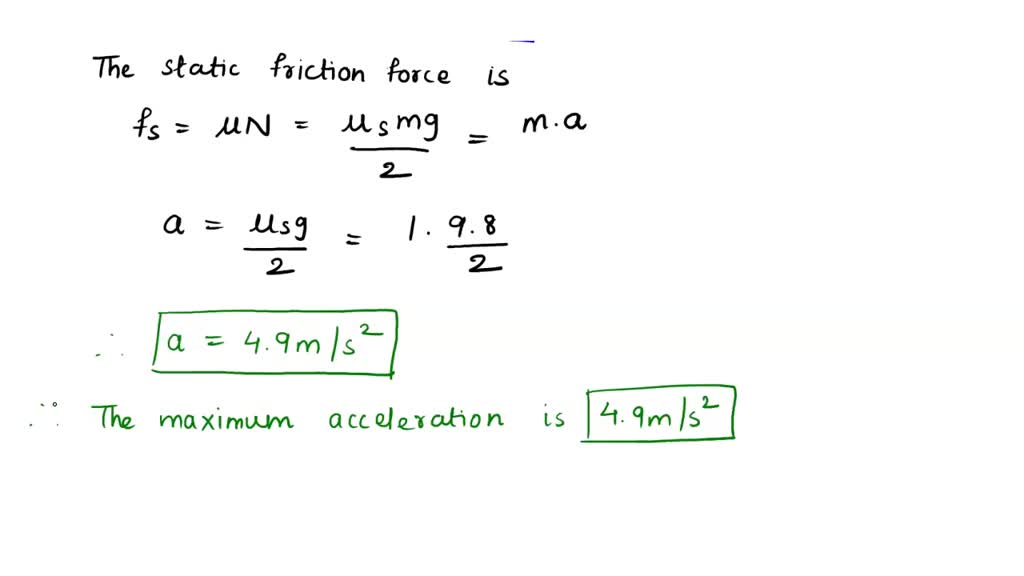 The static friction force is
fs = μN = μsmg/2 = m.a
a = μsg/2 = 1. 9.8/2
∴ a = 4.9m/s²
∴ The maximum acceleration is 4.9m/s²